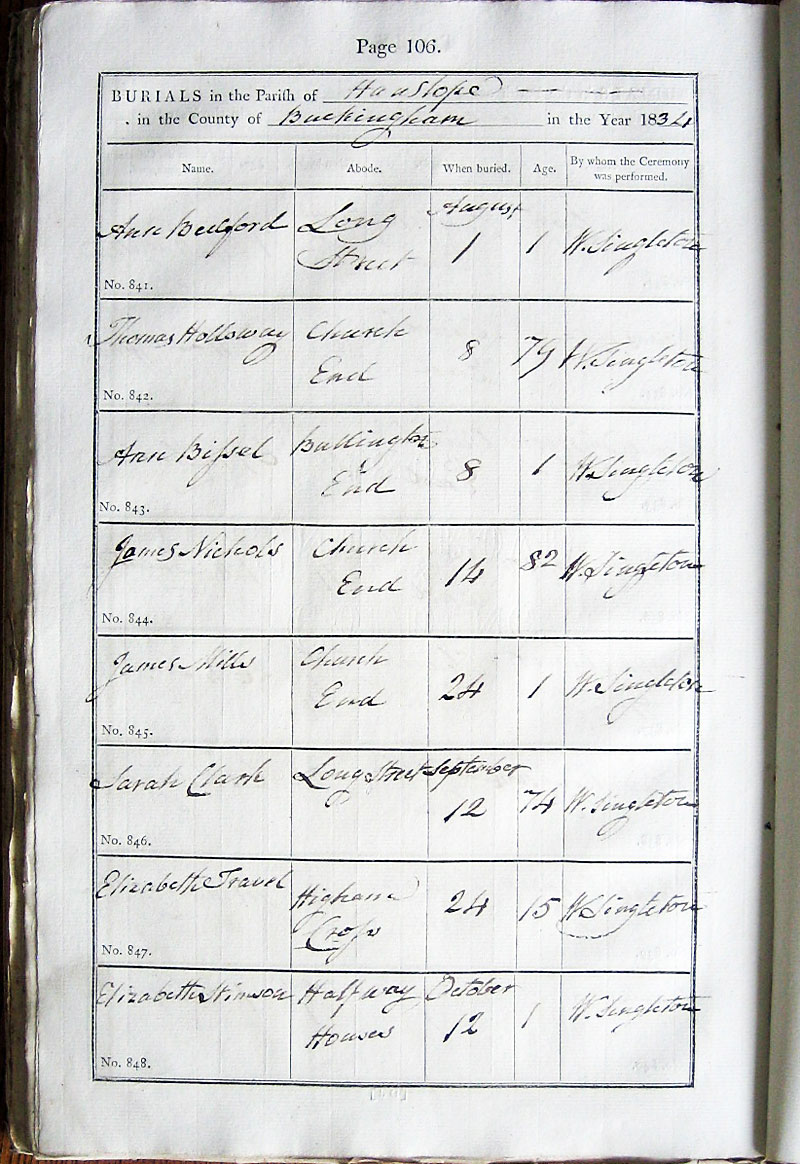 Page 106.
BURIALS in the Pariſh of Hanslope
in the County of Buckingham in the Year 1834
Name. Abode. When buried. Age. By whom the Ceremony was performed.
August
Ann Bedford Long Street 1 1 W. Singleton
No. 841.
Thomas Holloway Church End 8 79 W. Singleton
No. 842.
Ann Biſsel Bullington End 8 1 W. Singleton
No. 843.
James Nichols Church End 14 82 W. Singleton
No. 844.
James Mills Church End 24 1 W. Singleton
No. 845.
Sarah Clark Long Street September 12 74 W. Singleton
No. 846.
Elizabeth Travel Higham Croſs 24 15 W. Singleton
No. 847.
Elizabeth Stimson Halfway Houses October 12 1 W. Singleton
No. 848.